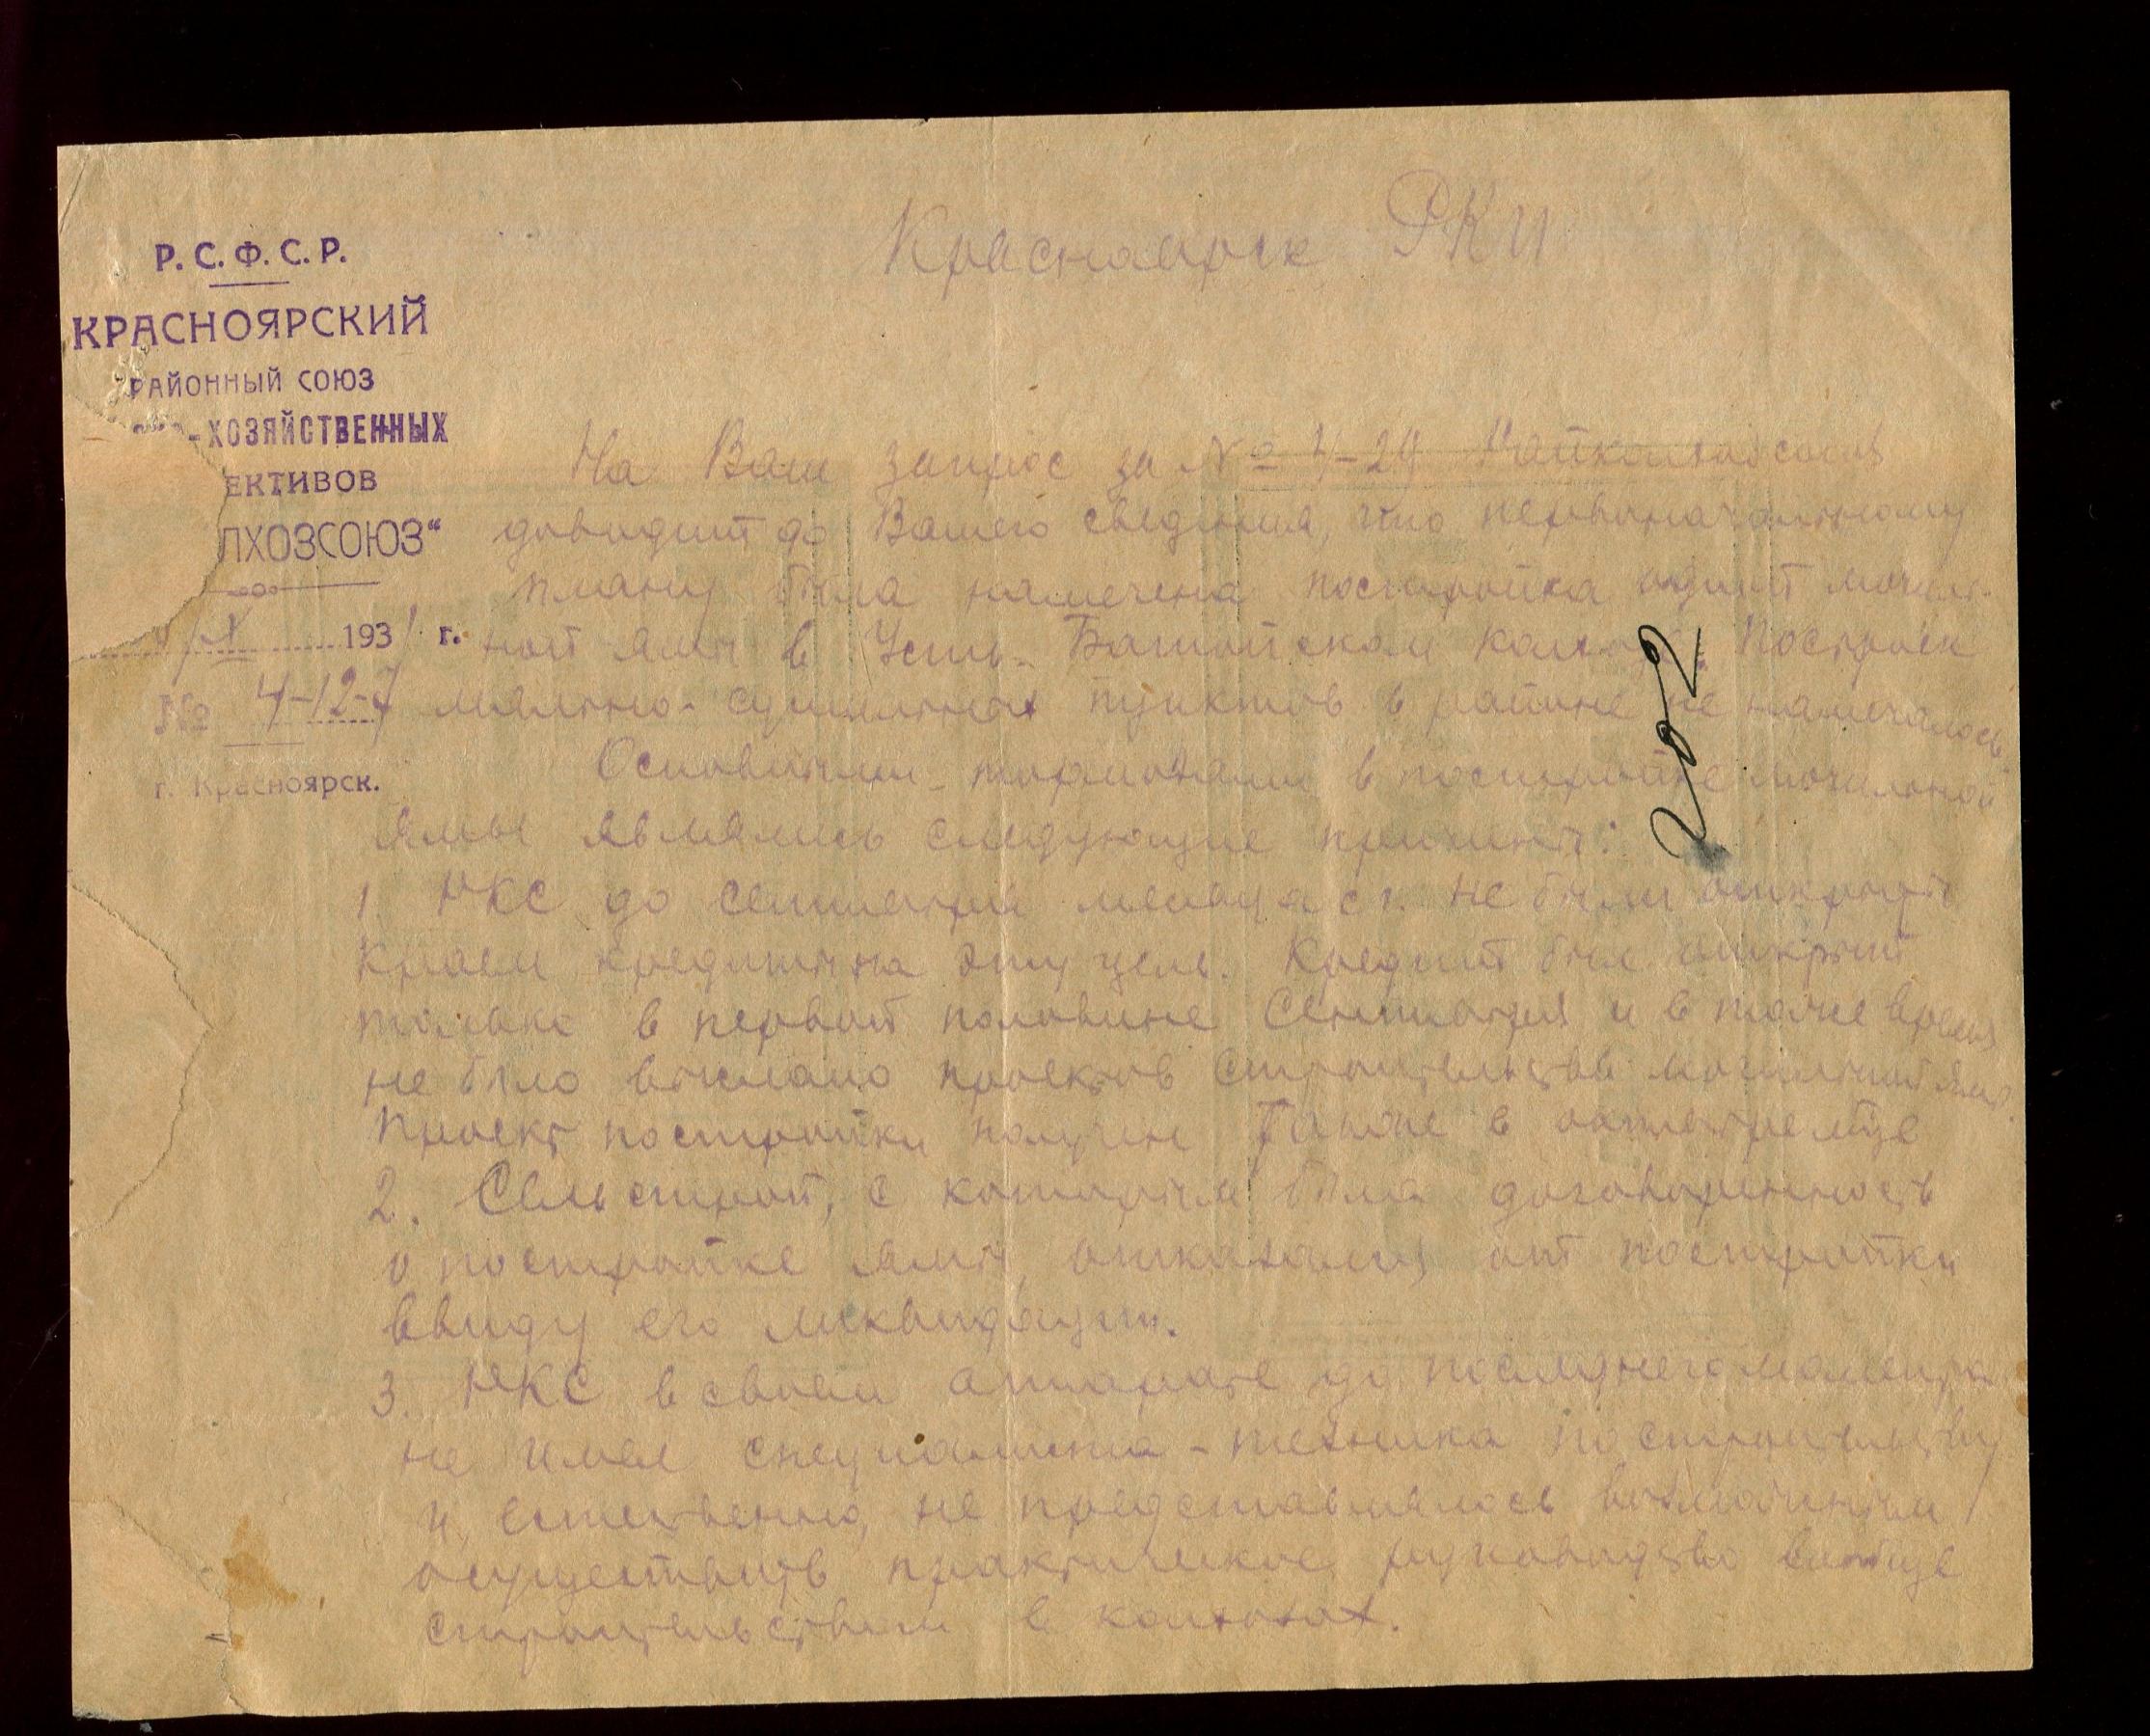 Р. С. Ф. С. Р.
КРАСНОЯРСКИЙ
РАЙОННЫЙ СОЮЗ
-ХОЗЯЙСТВЕННЫХ
ЕКТИВОВ
ЛХОЗСОЮЗ"
X 1931 г.
№ 4-12-7
г. Красноярск.
Красноярск РКИ
На Ваш запрос за № 4-24 Райколхозсоюз
доводит до Вашего сведения, что первоначальному
плану была намечена постройка одной мочиль-
ной ямы в Усть- колхозе. Построек
мяльно-сушильных пунктов в районе не намечалось.
Основными тормозами в постройке мочильной
ямы являлись следующие причины:
1 РКС до сентября месяца с г. не были открыты
Краем кредиты на эту цель. Кредит был открыт
только в первой половине Сентября и в тоже время
не было выслано проектов строительства мочильной ямы.
Проект постройки получен также в октябре м-це
2. Сельстрой, с которым была договоренность
о постройке ямы, отказался от постройки
ввиду его ликвидации.
3. РКС в своем аппарате до последнего момента
не имел специалиста-техника по строительству
и, естественно, не представлялось возможным
осуществить практическое руководство вообще
строительством в колхозах.
202